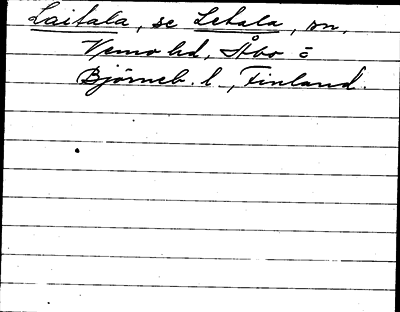 Laitala, se Letala, sn,
Vemo hd, Åbo o
Björneb. l., Finland.